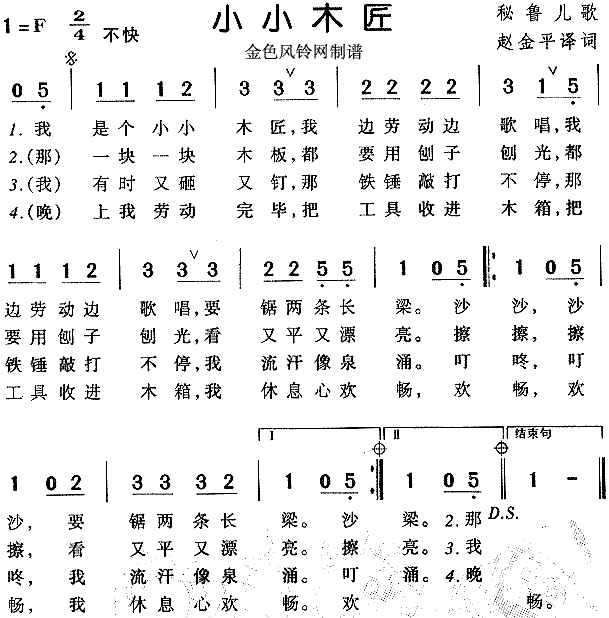 小小木匠
1=F 2/4 不快
秘鲁儿歌
赵金平译词
金色风铃网制谱
0 5 | 1 1 1 2 | 3 3 3 | 2 2 2 2 | 3 1 5 |
1.我 是个小小 木匠,我 边劳动边 歌唱,我
2.(那) 一块一块 木板,都 要用刨子 刨光,都
3.(我) 有时又砸 又钉,那 铁锤敲打 不停,那
4.(晚) 上我劳动 完毕,把 工具收进 木箱,把
1 1 1 2 | 3 3 3 | 2 2 5 5 | 1 0 5 :1 0 5 |
边劳动边 歌唱,要 锯两条长 梁。沙 沙,沙
要用刨子 刨光,看 又平又漂 亮。擦 擦,擦
铁锤敲打 不停,我 流汗像泉 涌。叮 咚,叮
工具收进 木箱,我 休息心欢 畅,欢 畅,欢
I II 结束句
1 0 2 | 3 3 3 2 | 1 0 5 : 1 0 5 | 1 -
D.S.
沙,要 锯两条长 梁。沙 梁。2.那
擦,看 又平又漂 亮。擦 亮。3.我
咚,我 流汗像泉 涌。叮 涌。4.晚
畅,我 休息心欢 畅。欢 畅。